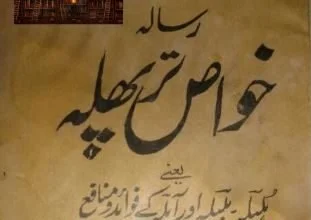 رسالہ
خواص تربھلہ
یعنی
ہلیلہ بلیلہ اور آملہ کے فوائد و منافع